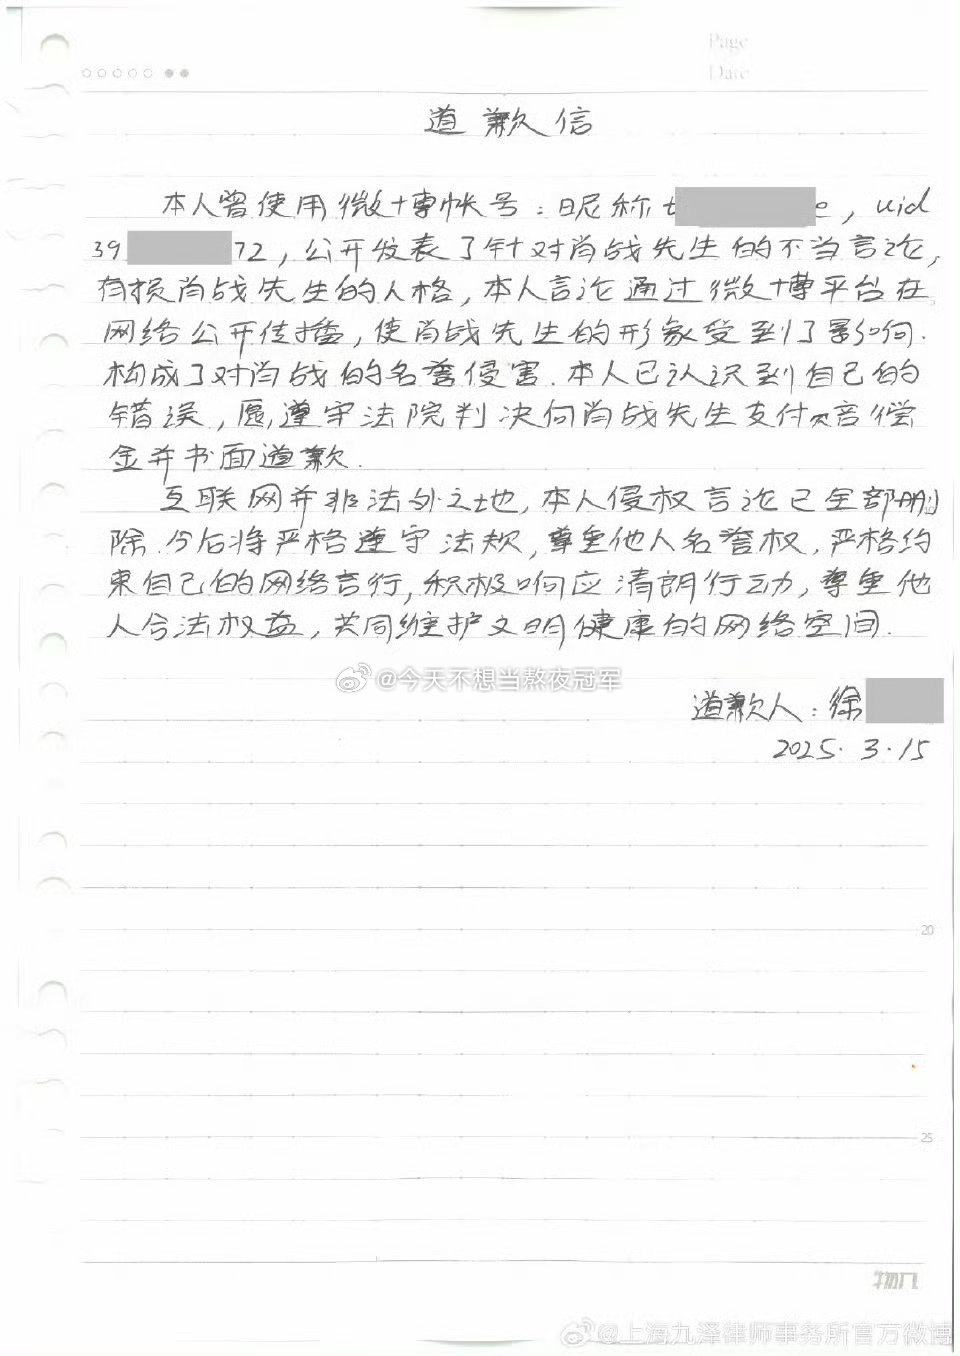 Page
Date
道歉信
本人曾使用微博帐号：昵称t e，uid
39 72，公开发表了针对肖战先生的不当言论，
有损肖战先生的人格，本人言论通过微博平台在
网络公开传播，使肖战先生的形象受到了影响.
构成了对肖战的名誉侵害.本人已认识到自己的
错误，愿遵守法院判决向肖战先生支付 偿
金并书面道歉.
互联网并非法外之地，本人侵权言论已全部删
除.今后将严格遵守法规，尊重他人名誉权，严格约
束自己的网络言行，积极响应清朗行动，尊重他
人合法权益，共同维护文明健康的网络空间.
@今天不想当熬夜冠军
道歉人：徐
2025.3.15
20
25
物几
@上海九泽律师事务所官方微博